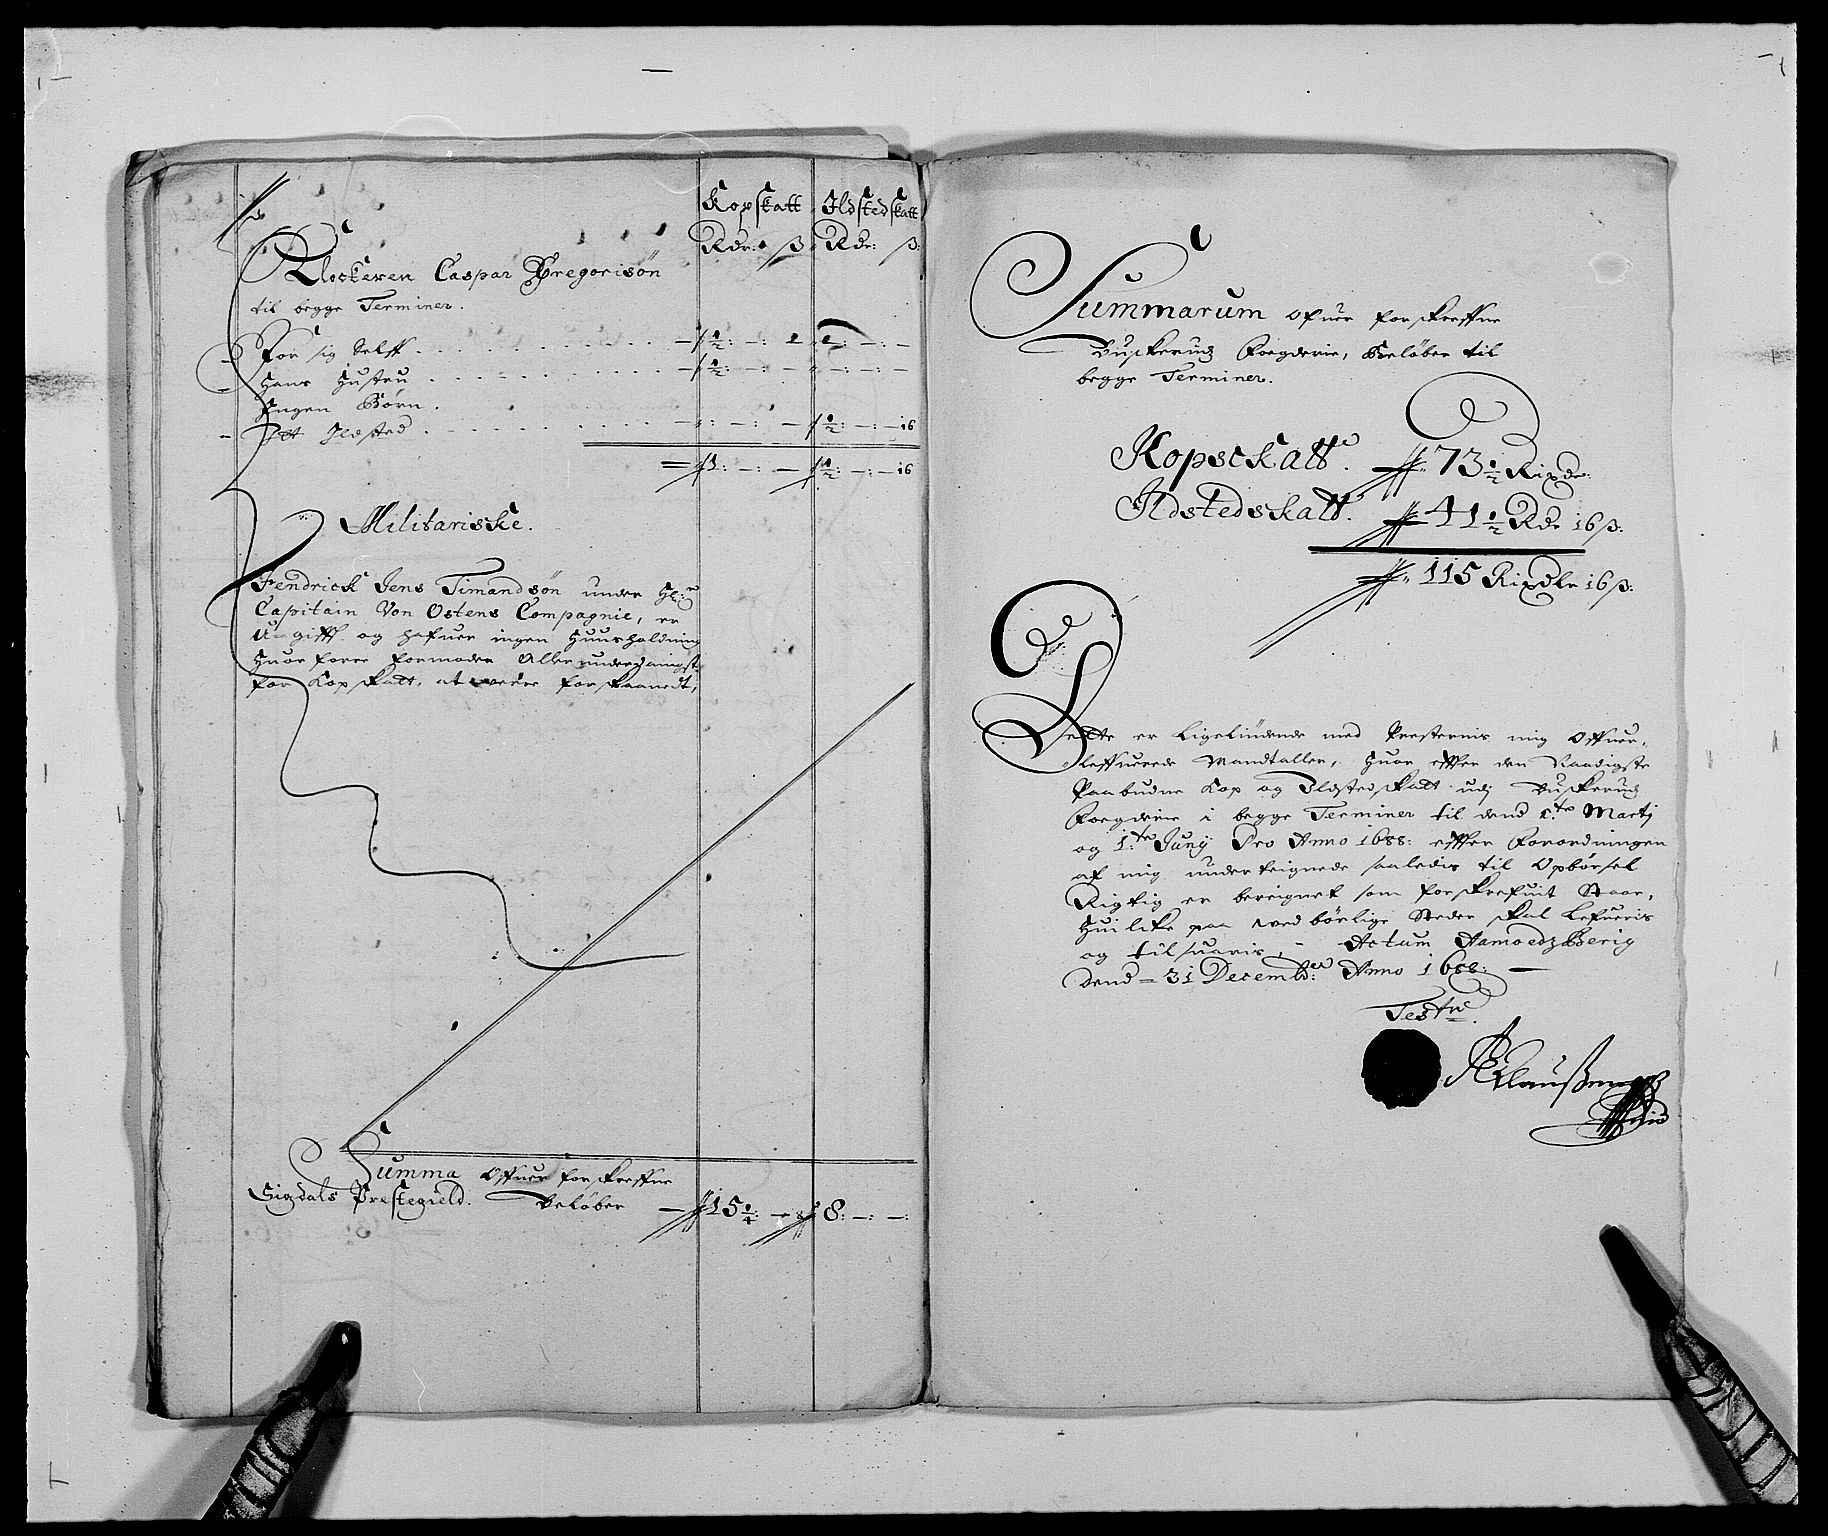 Kopskatt Ildstedskatt
Rdr: ß Rdr: ß:
Klockeren Caspar Gregorisön
til begge Terminer.
For sig Selff . . . . . . . . . . ½: —: —
Hans Hustru . . . . . . . . . . ½: —: —
Ingen Börn.
Itt Ildsted . . . . . . . . . . —: —: — ½: —: — 16
1: —: — ½: —: — 16
Militariske.
Fendrick Jens Timandsön under Hr:
Capitain Von Ostens Compagnie, er
Ugifft og hafuer ingen Huusholdning
Huor forre formoder Allerunderdanigst
for Kopskatt, at were forskaanedt,
Summa Offuer forskreffne
Sigdals Prestegield. beløber 15¼ 8: —: —:
Summarum ofuer forskreffne
Buskeruds Foegderie, Beløber til
begge Terminer.
Kopsckatt. 73½ Rixdr:
Ildstedskatt. 41½ Rdr 16 ß:
115 Rixdlr 16 ß:
Dette er Ligelüdende med Presternis mig Offuer-
leffuerede Mandtaller, Huor effter den Naadigste
Paabudne Kop og Ildstedskatt udj Buskeruds
Foegderie i begge Terminer til dend 1.te Martj
og 1.te Junij Pro Anno 1688: effter Forordningen
af mig underteignede saaledis til Opbörsel
Rigtig er bereignet som forskrefuit Staar,
Huilke paa wedbörlige Steder skal Lefueris
og tilsuaris, Actum Aamoedz Berig
dend 31 Decembr: Anno 1688: —
Test
Claußen